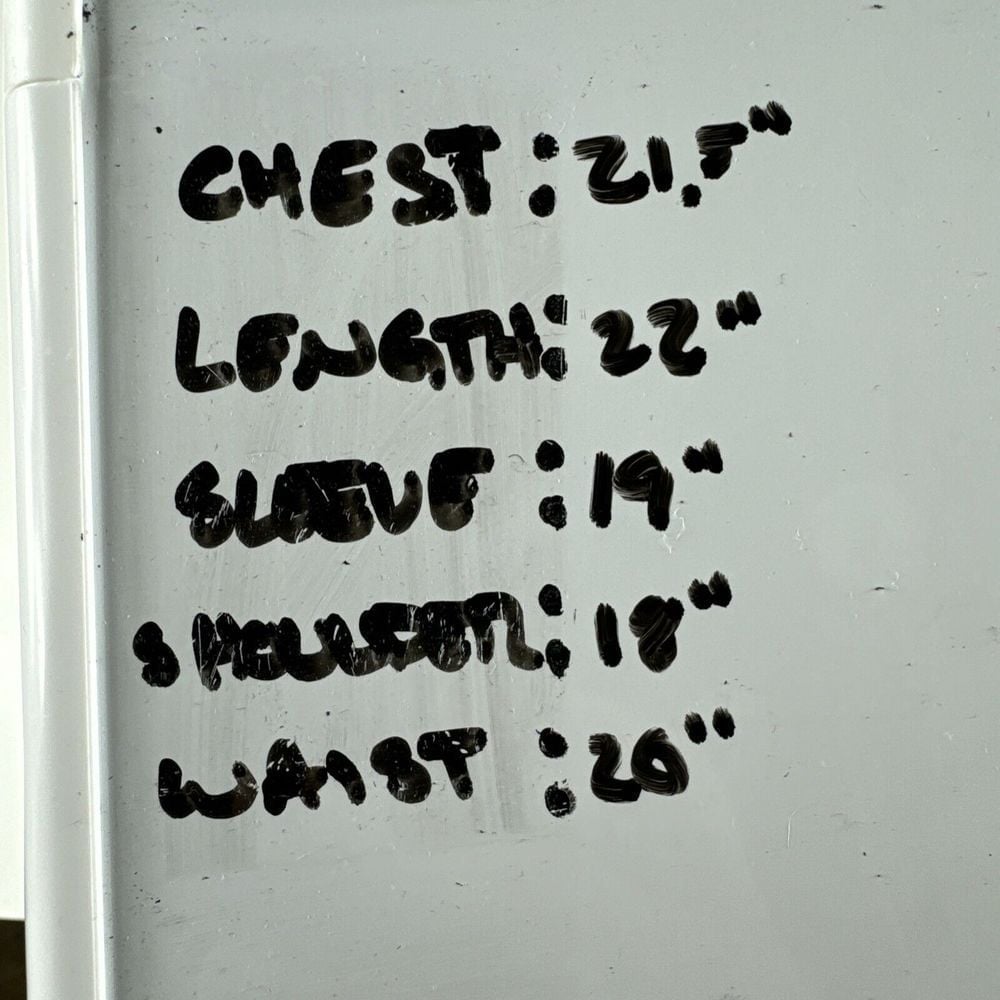 CHEST : 21.5"
LENGTH: 22"
SLEEVE : 19"
SHOULDER: 18"
WAIST : 20"